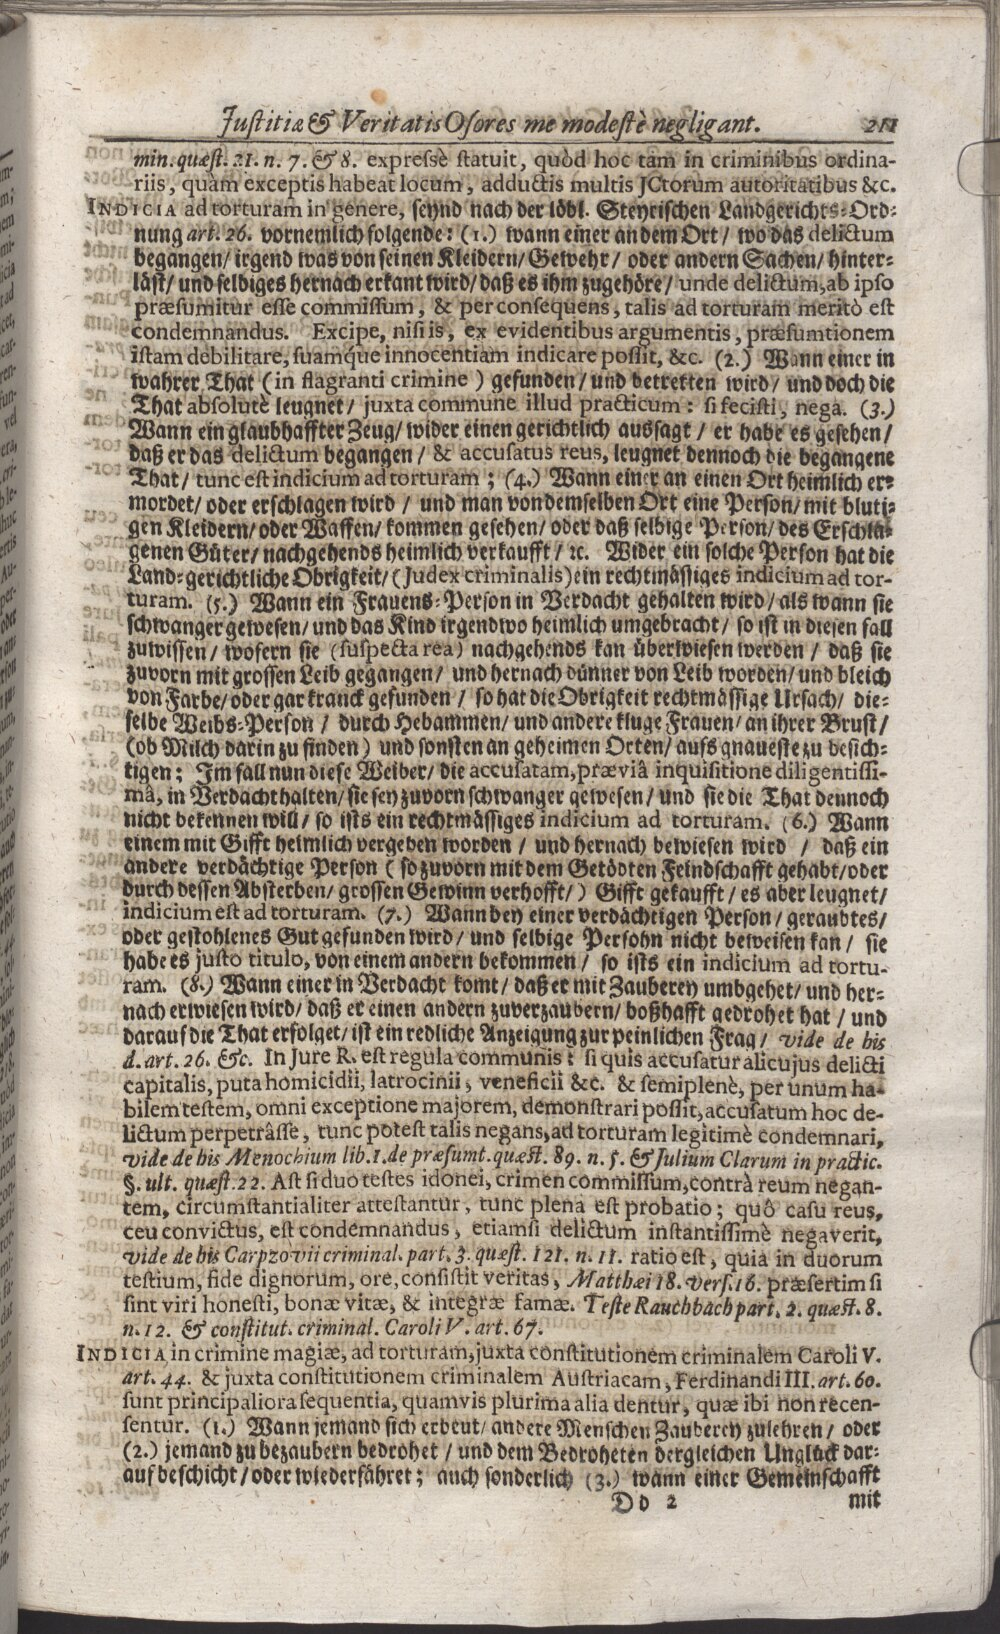 Justitiæ & Veritatis Osores me modestè negligant. 211
min. quæst. 21. n. 7. & 8. expressè statuit, quòd hoc tam in criminibus ordina-
riis, quàm exceptis habeat locum, adductis multis JCtorum autoritatibus &c.
INDICIA ad torturam in genere, seynd nach der löbl. Steyrischen Landgerichts-Ord-
nung art. 26. vornemlich folgende: (1.) wann einer an dem Ort / wo das delictum
begangen / irgend was von seinen Kleidern / Gewehr / oder andern Sachen / hinter-
läst / und selbiges hernach erkant wird / daß es ihm zugehöre / unde delictum, ab ipso
præsumitur esse commissum, & per consequens, talis ad torturam meritò est
condemnandus. Excipe, nisi is, ex evidentibus argumentis, præsumtionem
istam debilitare, suamque innocentiam indicare possit, &c. (2.) Wann einer in
wahrer That (in flagranti crimine) gefunden / und betretten wird / und doch die
That absolutè leugnet / juxta commune illud practicum: si fecisti, nega. (3.)
Wann ein glaubhaffter Zeug / wider einen gerichtlich aussagt / er habe es gesehen /
daß er das delictum begangen / & accusatus reus, leugnet dennoch die begangene
That / tunc est indicium ad torturam; (4.) Wann einer an einen Ort heimlich er-
mordet / oder erschlagen wird / und man von demselben Ort eine Person / mit bluti-
gen Kleidern / oder Waffen / kommen gesehen / oder daß selbige Person / des Erschla-
genen Güter / nachgehends heimlich verkaufft / ꝛc. Wider ein solche Person hat die
Land-gerichtliche Obrigkeit / (Judex criminalis) ein rechtmässiges indicium ad tor-
turam. (5.) Wann ein Frauens-Person in Verdacht gehalten wird / als wann sie
schwanger gewesen / und das Kind irgendwo heimlich umgebracht / so ist in diesen fall
zuwissen / wofern sie (suspecta rea) nachgehends kan überwiesen werden / daß sie
zuvorn mit grossen Leib gegangen / und hernach dünner von Leib worden / und bleich
von Farbe / oder gar kranck gefunden / so hat die Obrigkeit rechtmässige Ursach / die-
selbe Weibs-Person / durch Hebammen / und andere kluge Frauen / an ihrer Brust /
(ob Milch darin zu finden) und sonsten an geheimen Orten / aufs gnaueste zu besich-
tigen; Im fall nun diese Weiber / die accusatam, præviâ inquisitione diligentissi-
mâ, in Verdacht halten / sie sey zuvorn schwanger gewesen / und sie die That dennoch
nicht bekennen will / so ists ein rechtmässiges indicium ad torturam. (6.) Wann
einem mit Gifft heimlich vergeben worden / und hernach bewiesen wird / daß ein
andere verdächtige Person (so zuvorn mit dem Getödten Feindschafft gehabt / oder
durch dessen Absterben / grossen Gewinn verhofft /) Gifft gekaufft / es aber leugnet /
indicium est ad torturam. (7.) Wann bey einer verdächtigen Person / geraubtes /
oder gestohlenes Gut gefunden wird / und selbige Persohn nicht beweisen kan / sie
habe es justo titulo, von einem andern bekommen / so ists ein indicium ad tortu-
ram. (8.) Wann einer in Verdacht komt / daß er mit Zauberey umbgehet / und her-
nach erwiesen wird / daß er einen andern zuverzaubern / boßhafft gedrohet hat / und
darauf die That erfolget / ist ein redliche Anzeigung zur peinlichen Frag / vide de his
d. art. 26. &c. In Jure R. est regula communis: si quis accusatur alicujus delicti
capitalis, puta homicidii, latrocinii, veneficii &c. & semiplenè, per unum ha-
bilem testem, omni exceptione majorem, demonstrari possit, accusatum hoc de-
lictum perpetrâsse, tunc potest talis negans, ad torturam legitimè condemnari,
vide de his Menochium lib. 1. de præsumt. quæst. 89. n. 5. & Julium Clarum in practic.
§. ult. quæst. 22. Ast si duo testes idonei, crimen commissum, contrà reum negan-
tem, circumstantialiter attestantur, tunc plena est probatio; quô casu reus,
ceu convictus, est condemnandus, etiamsi delictum instantissimè negaverit,
vide de his Carpzovii criminal. part. 3. quæst. 121. n. 11. ratio est, quia in duorum
testium, fide dignorum, ore, consistit veritas, Matthæi 18. vers. 16. præsertim si
sint viri honesti, bonæ vitæ, & integræ famæ. Teste Rauchbach part. 2. quæst. 8.
n. 12. & constitut. criminal. Caroli V. art. 67.
INDICIA in crimine magiæ, ad torturam, juxta constitutionem criminalem Caroli V.
art. 44. & juxta constitutionem criminalem Austriacam, Ferdinandi III. art. 60.
sunt principaliora sequentia, quamvis plurima alia dentur, quæ ibi non recen-
sentur. (1.) Wann jemand sich erbeut / andere Menschen Zauberey zulehren / oder
(2.) jemand zu bezaubern bedrohet / und dem Bedroheten dergleichen Unglück dar-
auf beschicht / oder wiederfähret; auch sonderlich (3.) wann einer Gemeinschafft
Dd 2 mit